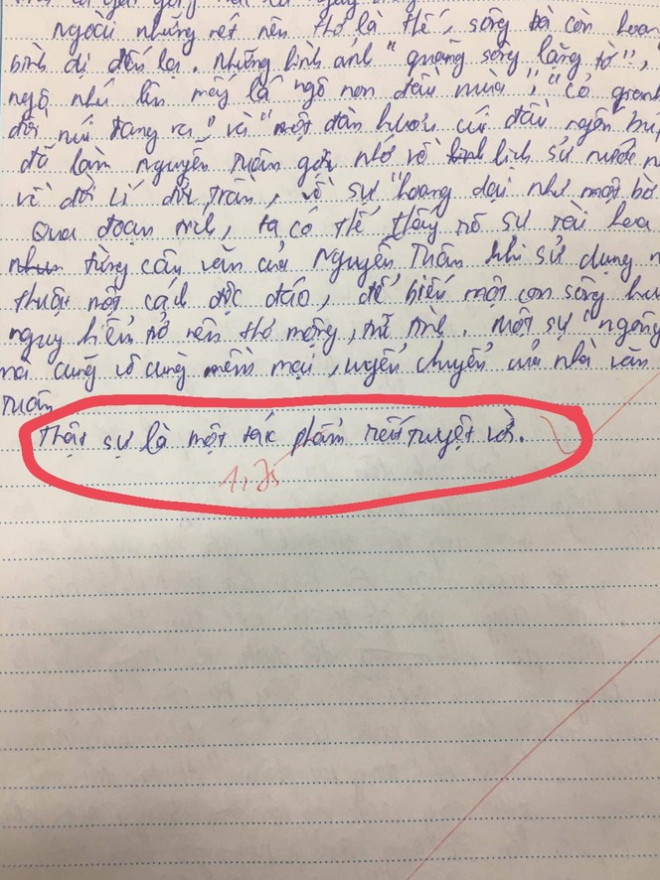 Ngoài những nét nên thơ là thế, sông Đà còn hoan
bình dị đến lạ. Những hình ảnh "quãng sông lặng tờ",
ngô nhú lên mấy lá ngô non đầu mùa", "cỏ gianh
đồi núi đang ra", và "một đàn hươu cúi đầu ngốn bú
đã làm Nguyễn Tuân gợi nhớ về lịch sử nước n
về đời Lí đời Trần, về sự "hoang dại như một bờ
Qua đoạn trích, ta có thể thấy rõ sự tài hoa
từng câu văn của Nguyễn Tuân khi sử dụng n
thuật một cách độc đáo, để biến một con sông hu
nguy hiểm trở nên thơ mộng, Một sự "ngông
mà cũng vô cùng mềm mại, uyển chuyển của nhà văn
Tuân
Thật sự là một tác phẩm rất tuyệt vời.
1,75